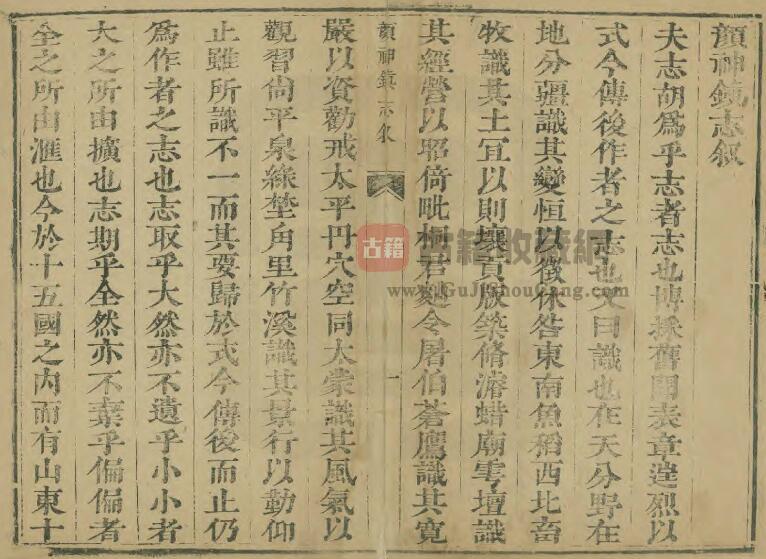 顏神鎮志叙
夫志胡爲乎志者志也博採舊聞表章逹烈以
式今傳後作者之志也又曰識也在天分野在
地分疆識其變恒以徵休咎東南魚稻西北畜
牧識其土宜以則壤貢版築脩濬蜡廟雩壇識
其經營以昭倚毗桐君令屠伯蒼鷹識其寛
顏神鎮志叙
一
嚴以資勸戒太平丹穴空同太蒙識其風氣以
觀習尙平泉綠埜角里竹溪識其景行以勤仰
止雖所識不一而其要歸於式今傳後而止仍
爲作者之志也志取乎大然亦不遺乎小小者
大之所由擴也志期乎全然亦不棄乎偏偏者
全之所由滙也今於十五國之內而有山東十
古籍
古籍收藏網
www.GuJiShouCang.com